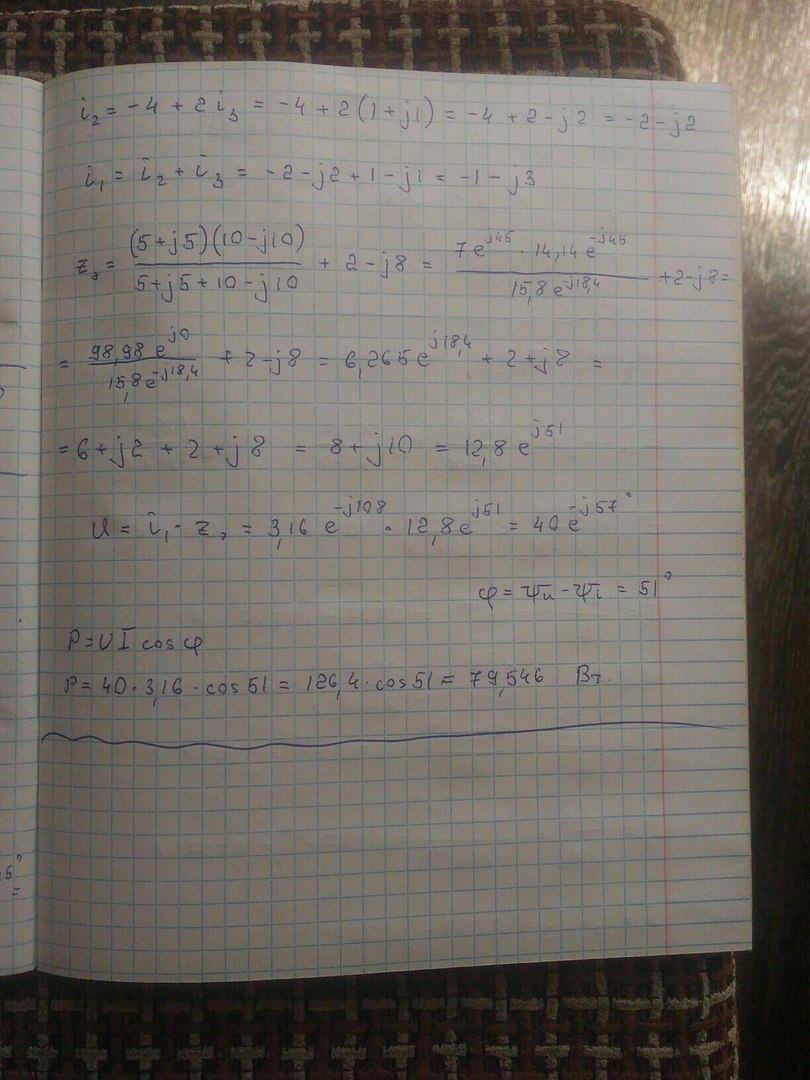 i₂ = -4 + 2 i₃ = -4 + 2 (1 + j1) = -4 + 2 - j2 = -2 - j2
i₁ = i₂ + i₃ = -2 - j2 + 1 - j1 = -1 - j3
zэ = (5 + j5)(10 - j10) / (5 + j5 + 10 - j10) + 2 - j8 = 7 e^(j45) · 14,14 e^(-j45) / 15,8 e^(-j18,4) + 2 - j8 =
= 98,98 e^(j0) / 15,8 e^(-j18,4) + 2 - j8 = 6,265 e^(j18,4) + 2 + j8 =
= 6 + j2 + 2 + j8 = 8 + j10 = 12,8 e^(j51)
U = i₁ · zэ = 3,16 e^(-j108) · 12,8 e^(j51) = 40 e^(-j57°)
φ = ψu - ψi = 51°
P = U I cos φ
P = 40 · 3,16 · cos 51 = 126,4 · cos 51 = 79,546 Вт.
5°
=